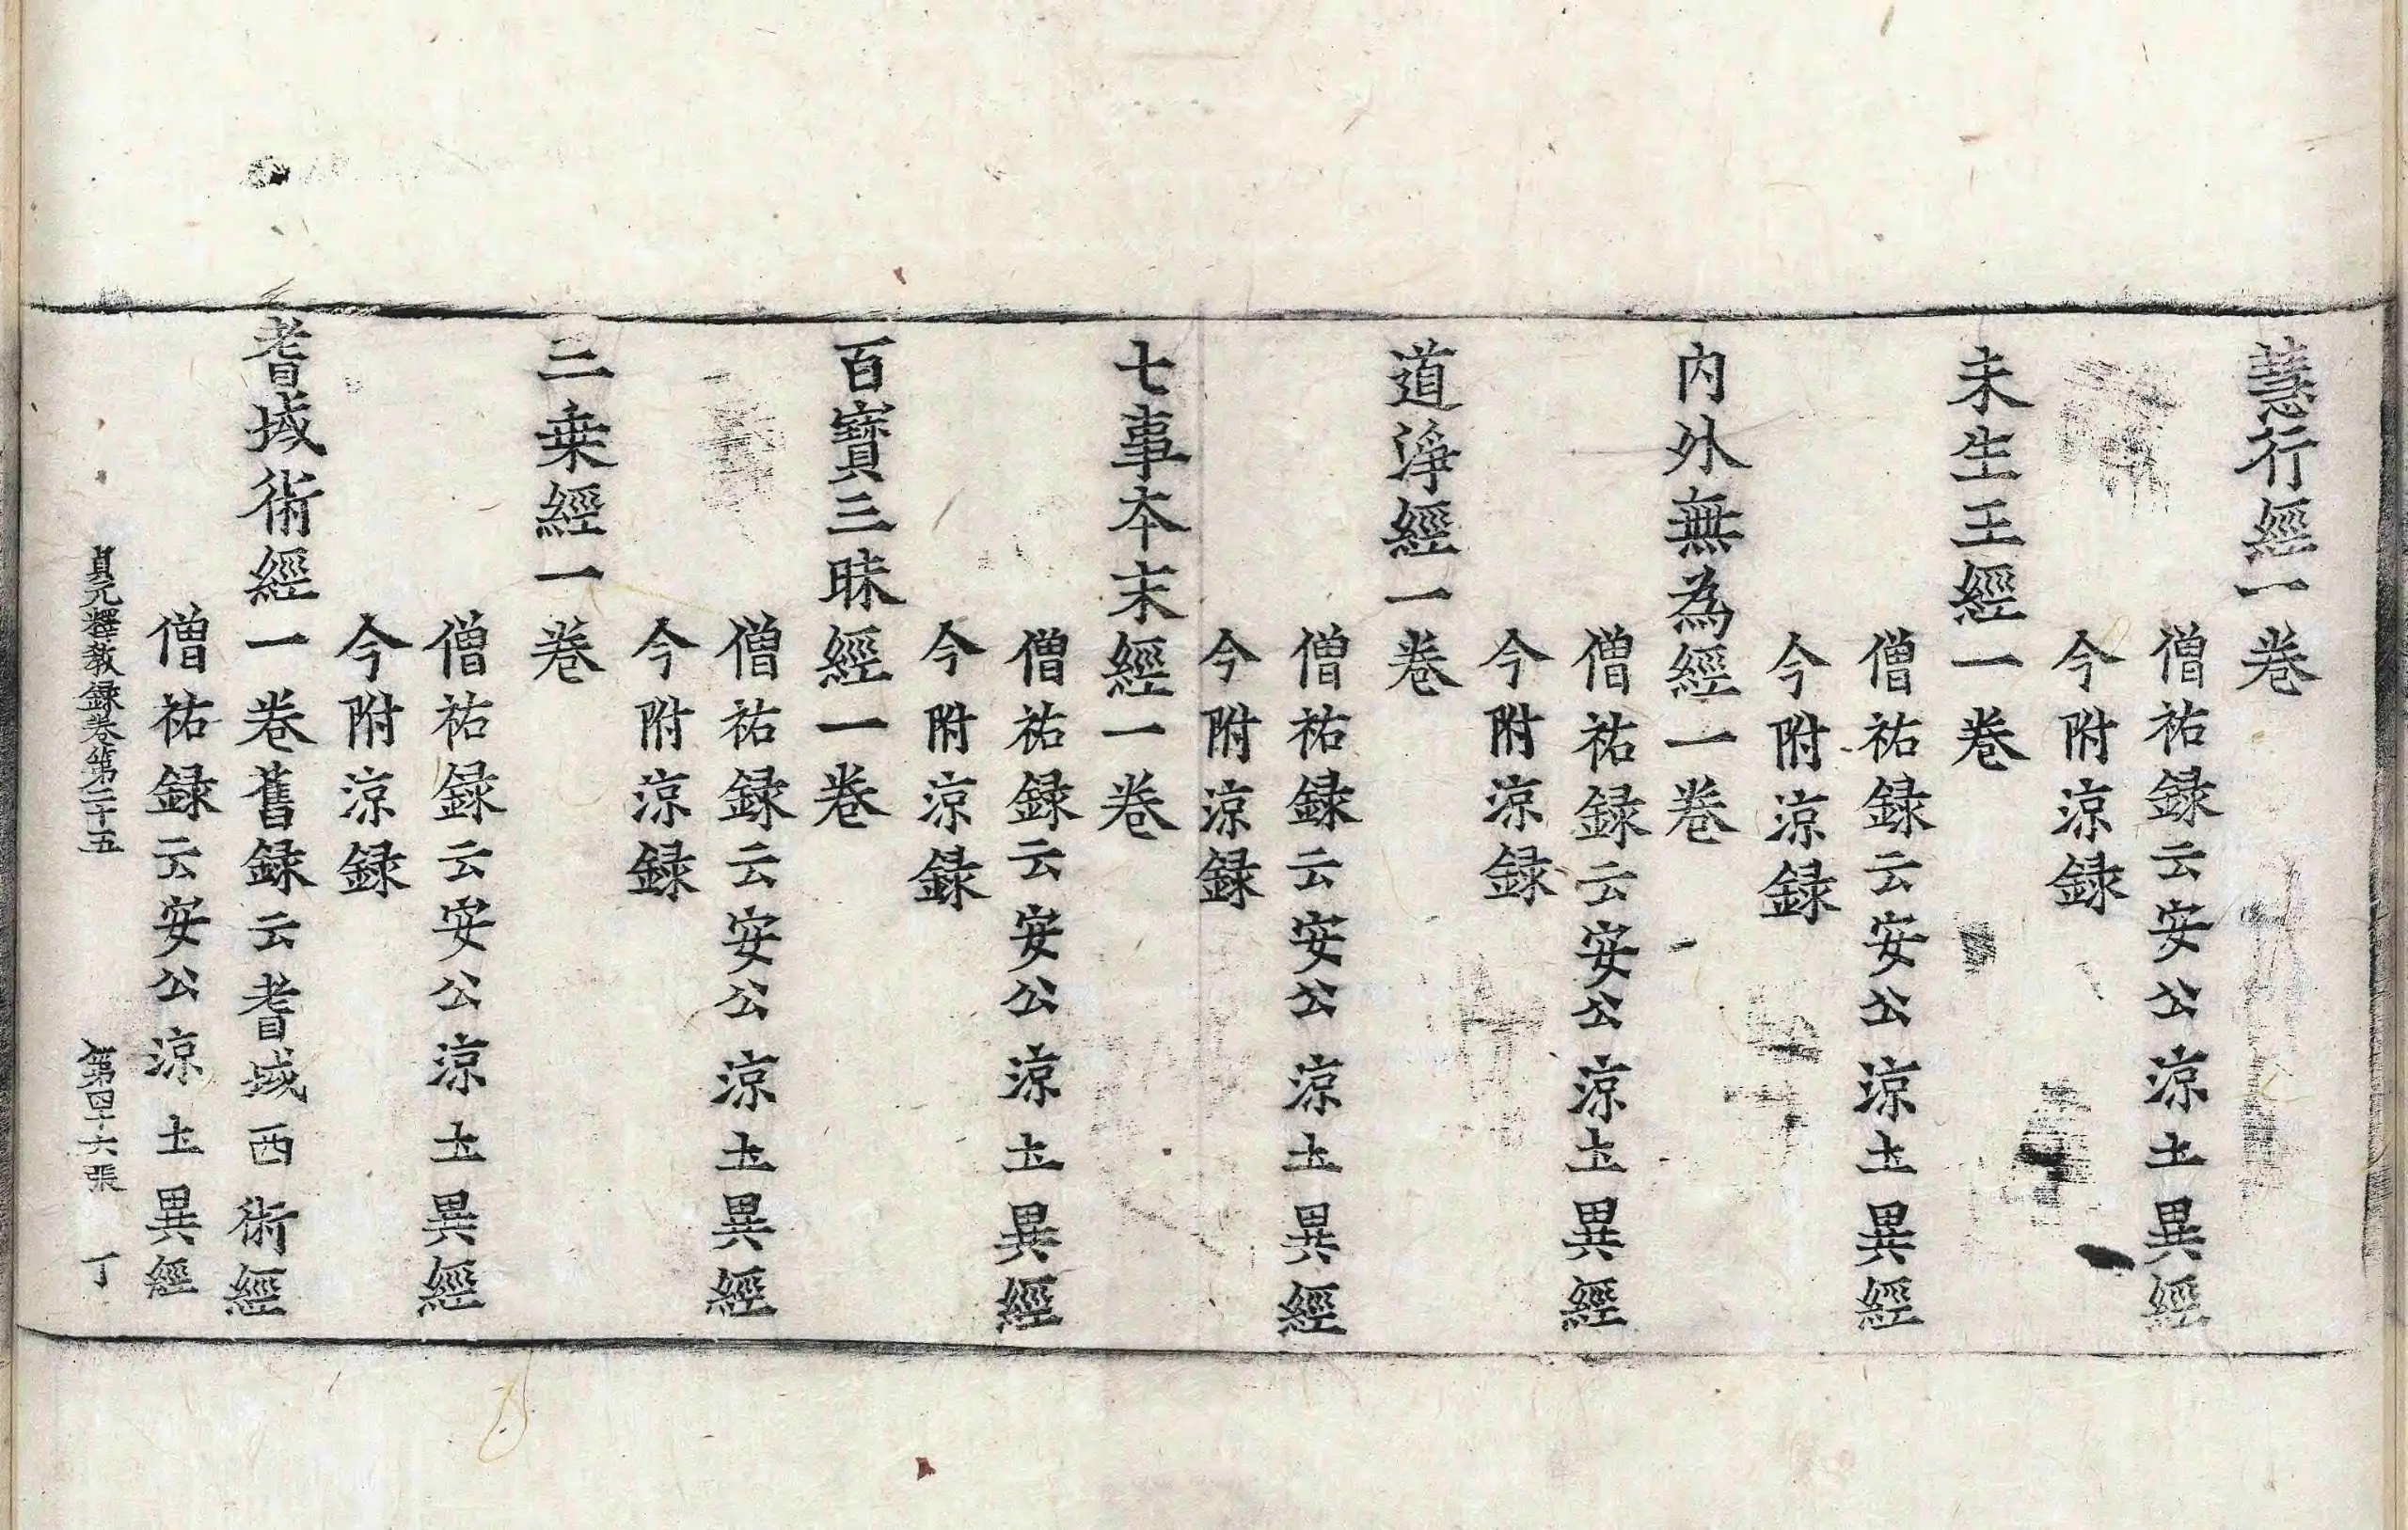 慧行經一卷
僧祐録云安公涼土異經
今附涼録
未生王經一卷
僧祐録云安公涼土異經
今附涼録
内外無為經一卷
僧祐録云安公涼土異經
今附涼録
道淨經一卷
僧祐録云安公涼土異經
今附涼録
七事本末經一卷
僧祐録云安公涼土異經
今附涼録
百寶三昧經一卷
僧祐録云安公涼土異經
今附涼録
二乗經一卷
僧祐録云安公涼土異經
今附涼録
耆域術經一卷舊録云耆域西術經
僧祐録云安公涼土異經
貞元釋教録卷第二十五 第四十六張 丁